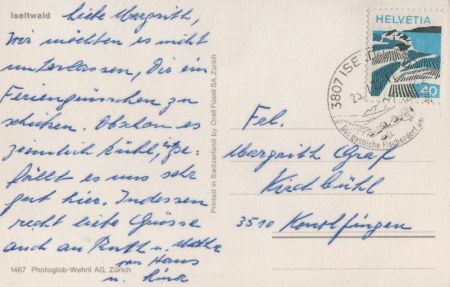 Iseltwald
Liebe Margrith,
Wir möchten es nicht
unterlassen, Dir ein
Feriengrüsschen zu
schicken. Obschon es
ziemlich kühl, ge-
fällt es uns sehr
gut hier. Indessen
recht liebe Grüsse
auch an Ruth u.
von Hans
u.
1467 Photoglob-Wehrli AG, Zürich
Printed in Switzerland by Orell Füssli SA Zürich
HELVETIA
40
3807
Das Fischerdorf am
Frl.
Margrith Graf
Kirchbühl
3510 Konolfingen